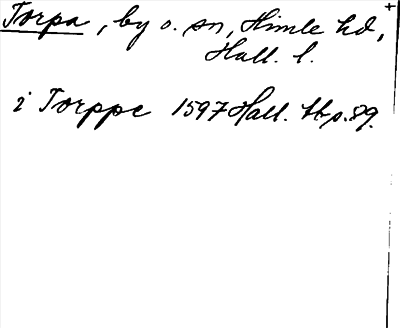 Torpa, by o. sn, Himle hd,
Hall. l.
i Torppe 1597 Hall. tb s. 89.